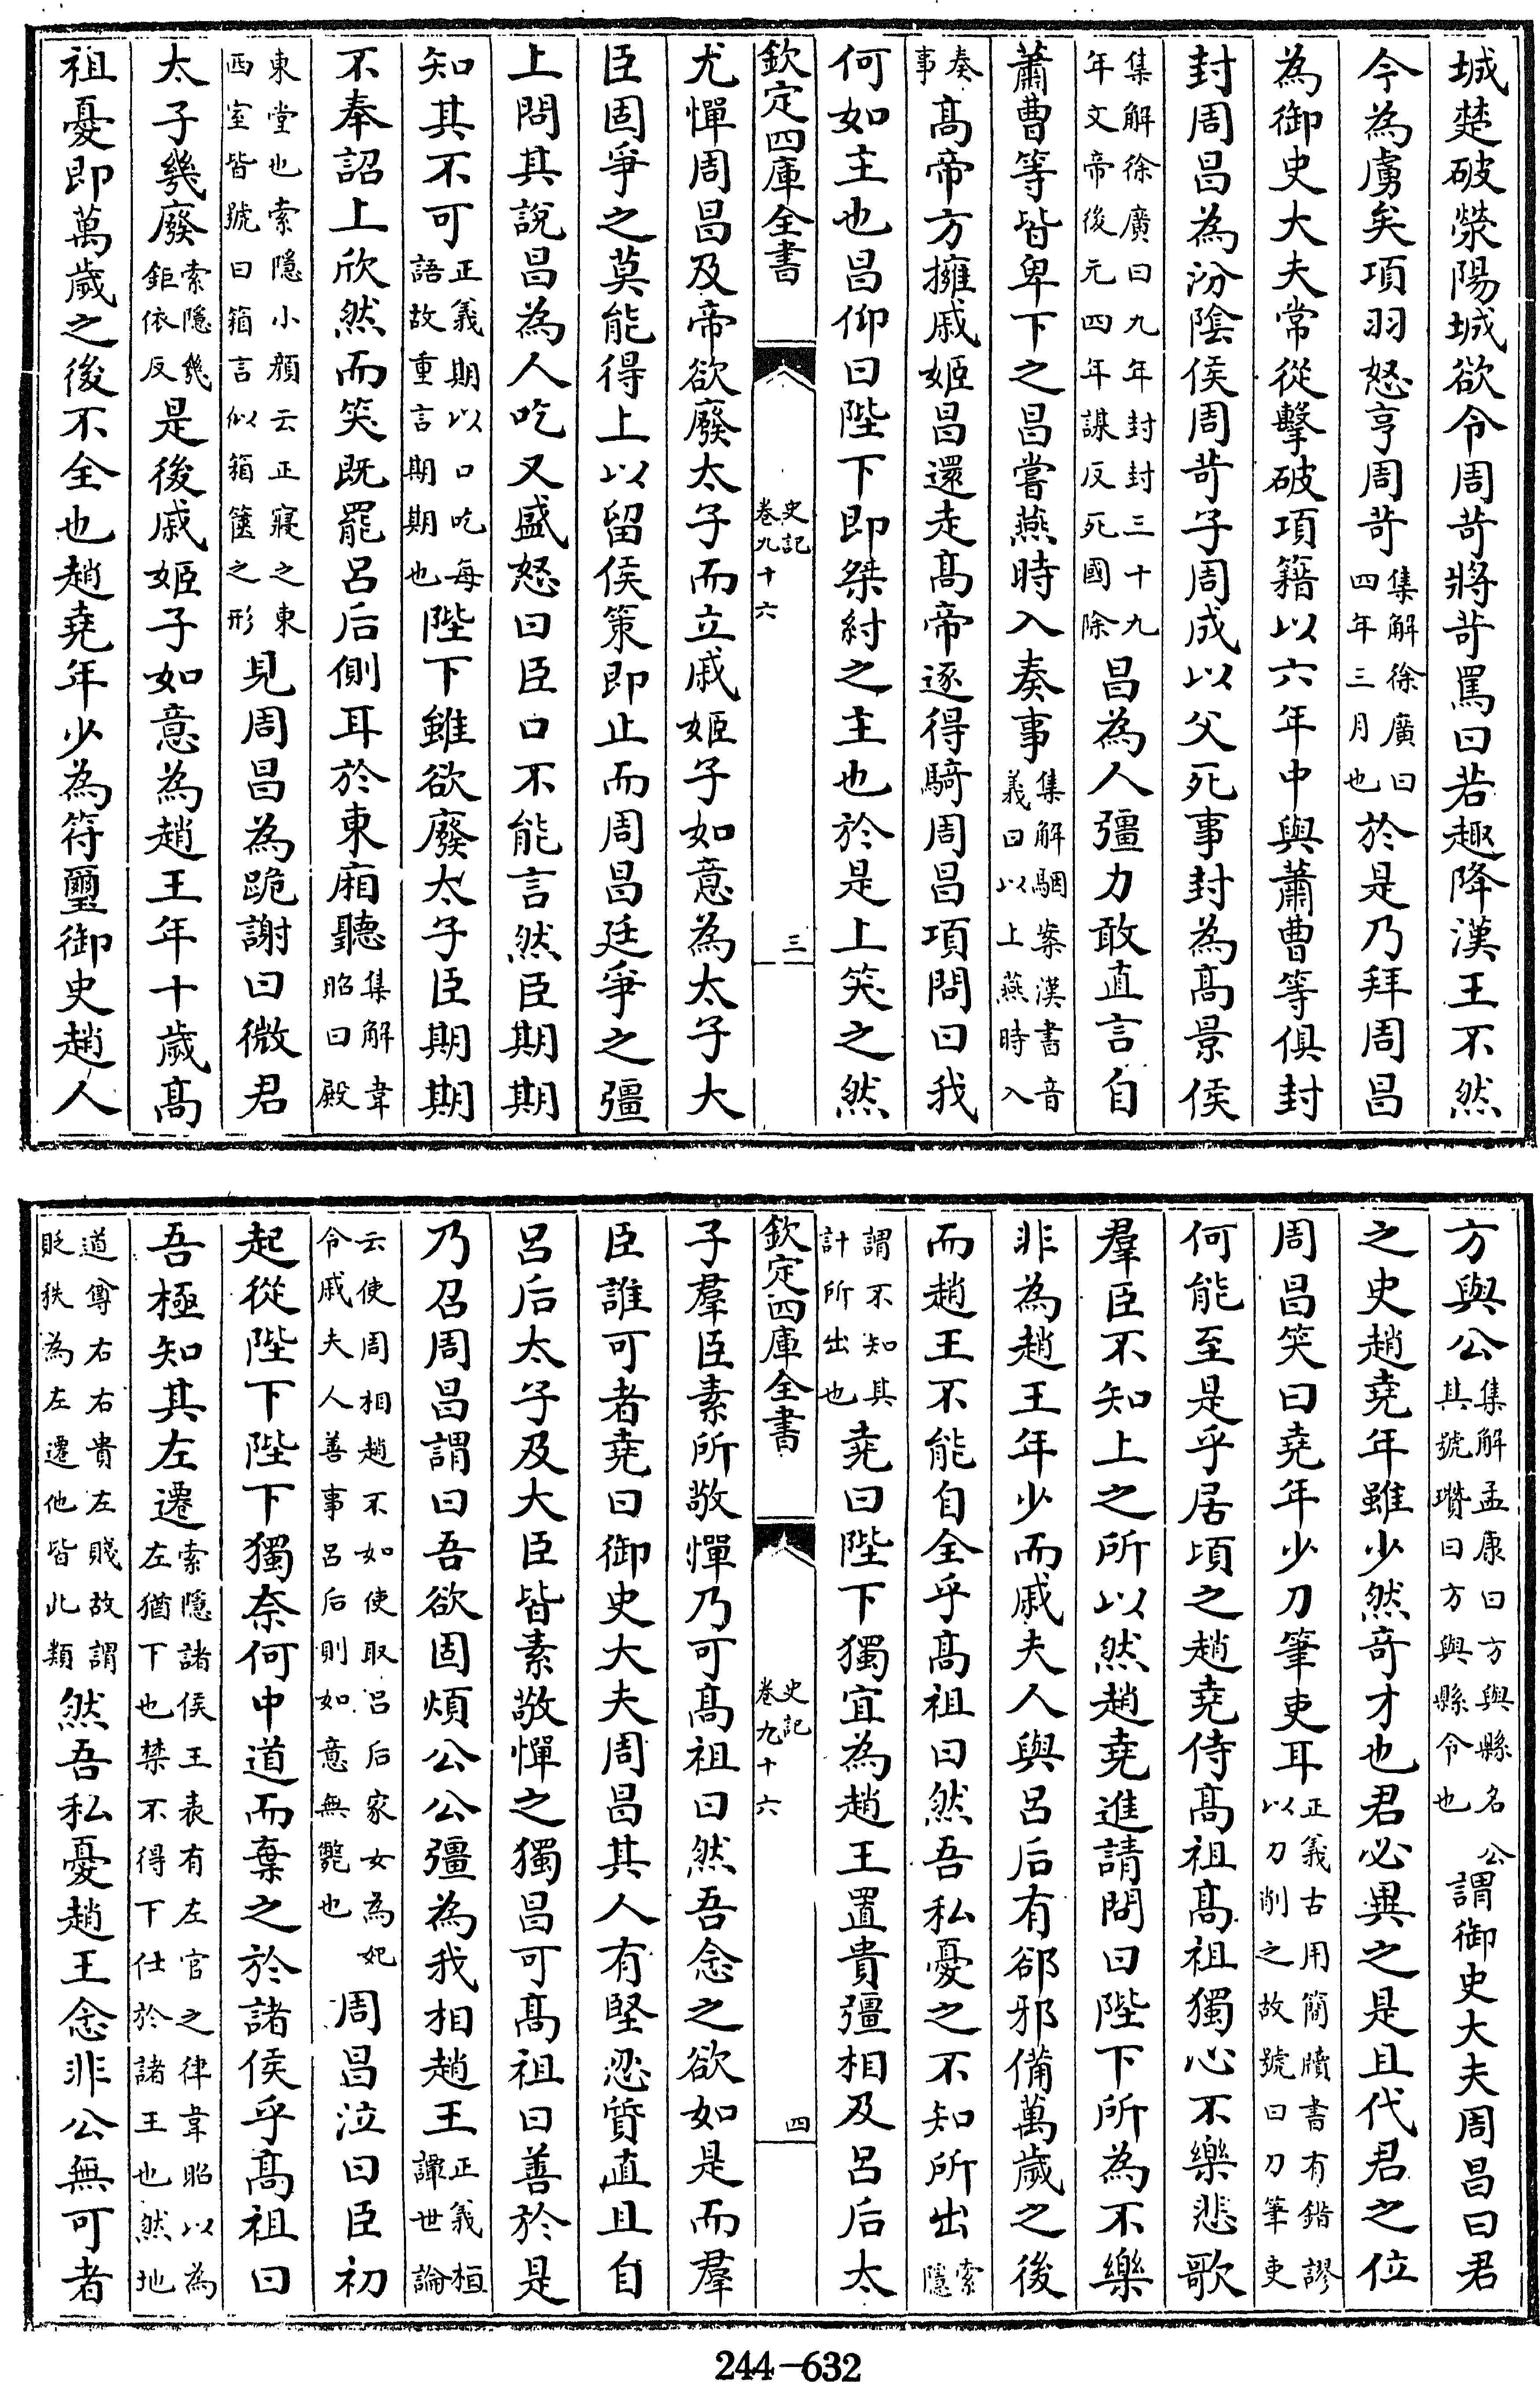 城楚破滎陽城欲令周苛將苛罵曰若趣降漢王不然
今為虜矣項羽怒亨周苛集解徐廣曰四年三月也於是乃拜周昌
為御史大夫常從擊破項籍以六年中與蕭曹等俱封
封周昌為汾隂侯周苛子周成以父死事封為髙景侯
集解徐廣曰九年封封三十九年文帝後元四年謀反死國除昌為人彊力敢直言自
蕭曹等皆卑下之昌嘗燕時入奏事集解駰案漢書音義曰以上燕時入
奏事髙帝方擁戚姬昌還走髙帝逐得騎周昌項問曰我
何如主也昌仰曰陛下即桀紂之主也於是上笑之然
欽定四庫全書
史記
卷九十六
三
尤憚周昌及帝欲廢太子而立戚姬子如意為太子大
臣固爭之莫能得上以留侯策即止而周昌廷爭之彊
上問其說昌為人吃又盛怒曰臣口不能言然臣期期
知其不可正義期以口吃每語故重言期期也陛下雖欲廢太子臣期期
不奉詔上欣然而笑既罷呂后側耳於東廂聽集解韋昭曰殿
東堂也索隱小顔云正寢之東西室皆號曰箱言似箱篋之形見周昌為跪謝曰微君
太子幾廢索隱幾鉅依反是後戚姬子如意為趙王年十歲髙
祖憂即萬歲之後不全也趙堯年少為符璽御史趙人
方與公集解孟康曰方與縣名公其號瓚曰方與縣令也謂御史大夫周昌曰君
之史趙堯年雖少然奇才也君必異之是且代君之位
周昌笑曰堯年少刀筆吏耳正義古用簡牘書有錯謬以刀削之故號曰刀筆吏
何能至是乎居頃之趙堯侍髙祖髙祖獨心不樂悲歌
羣臣不知上之所以然趙堯進請問曰陛下所為不樂
非為趙王年少而戚夫人與呂后有郤邪備萬歲之後
而趙王不能自全乎髙祖曰然吾私憂之不知所出索隱
謂不知其計所出也堯曰陛下獨宜為趙王置貴彊相及呂后太
欽定四庫全書
史記
卷九十六
四
子羣臣素所敬憚乃可髙祖曰然吾念之欲如是而羣
臣誰可者堯曰御史大夫周昌其人有堅忍質直且自
呂后太子及大臣皆素敬憚之獨昌可髙祖曰善於是
乃召周昌謂曰吾欲固煩公公彊為我相趙王正義桓譚世論
云使周相趙不如使取呂后家女為妃令戚夫人善事呂后則如意無斃也周昌泣曰臣初
起從陛下陛下獨奈何中道而棄之於諸侯乎髙祖曰
吾極知其左遷索隱諸侯王表有左官之律韋昭以為左猶下也禁不得下仕於諸王也然地
道尊右右貴左賤故謂貶秩為左遷他皆此類然吾私憂趙王念非公無可者
244-632